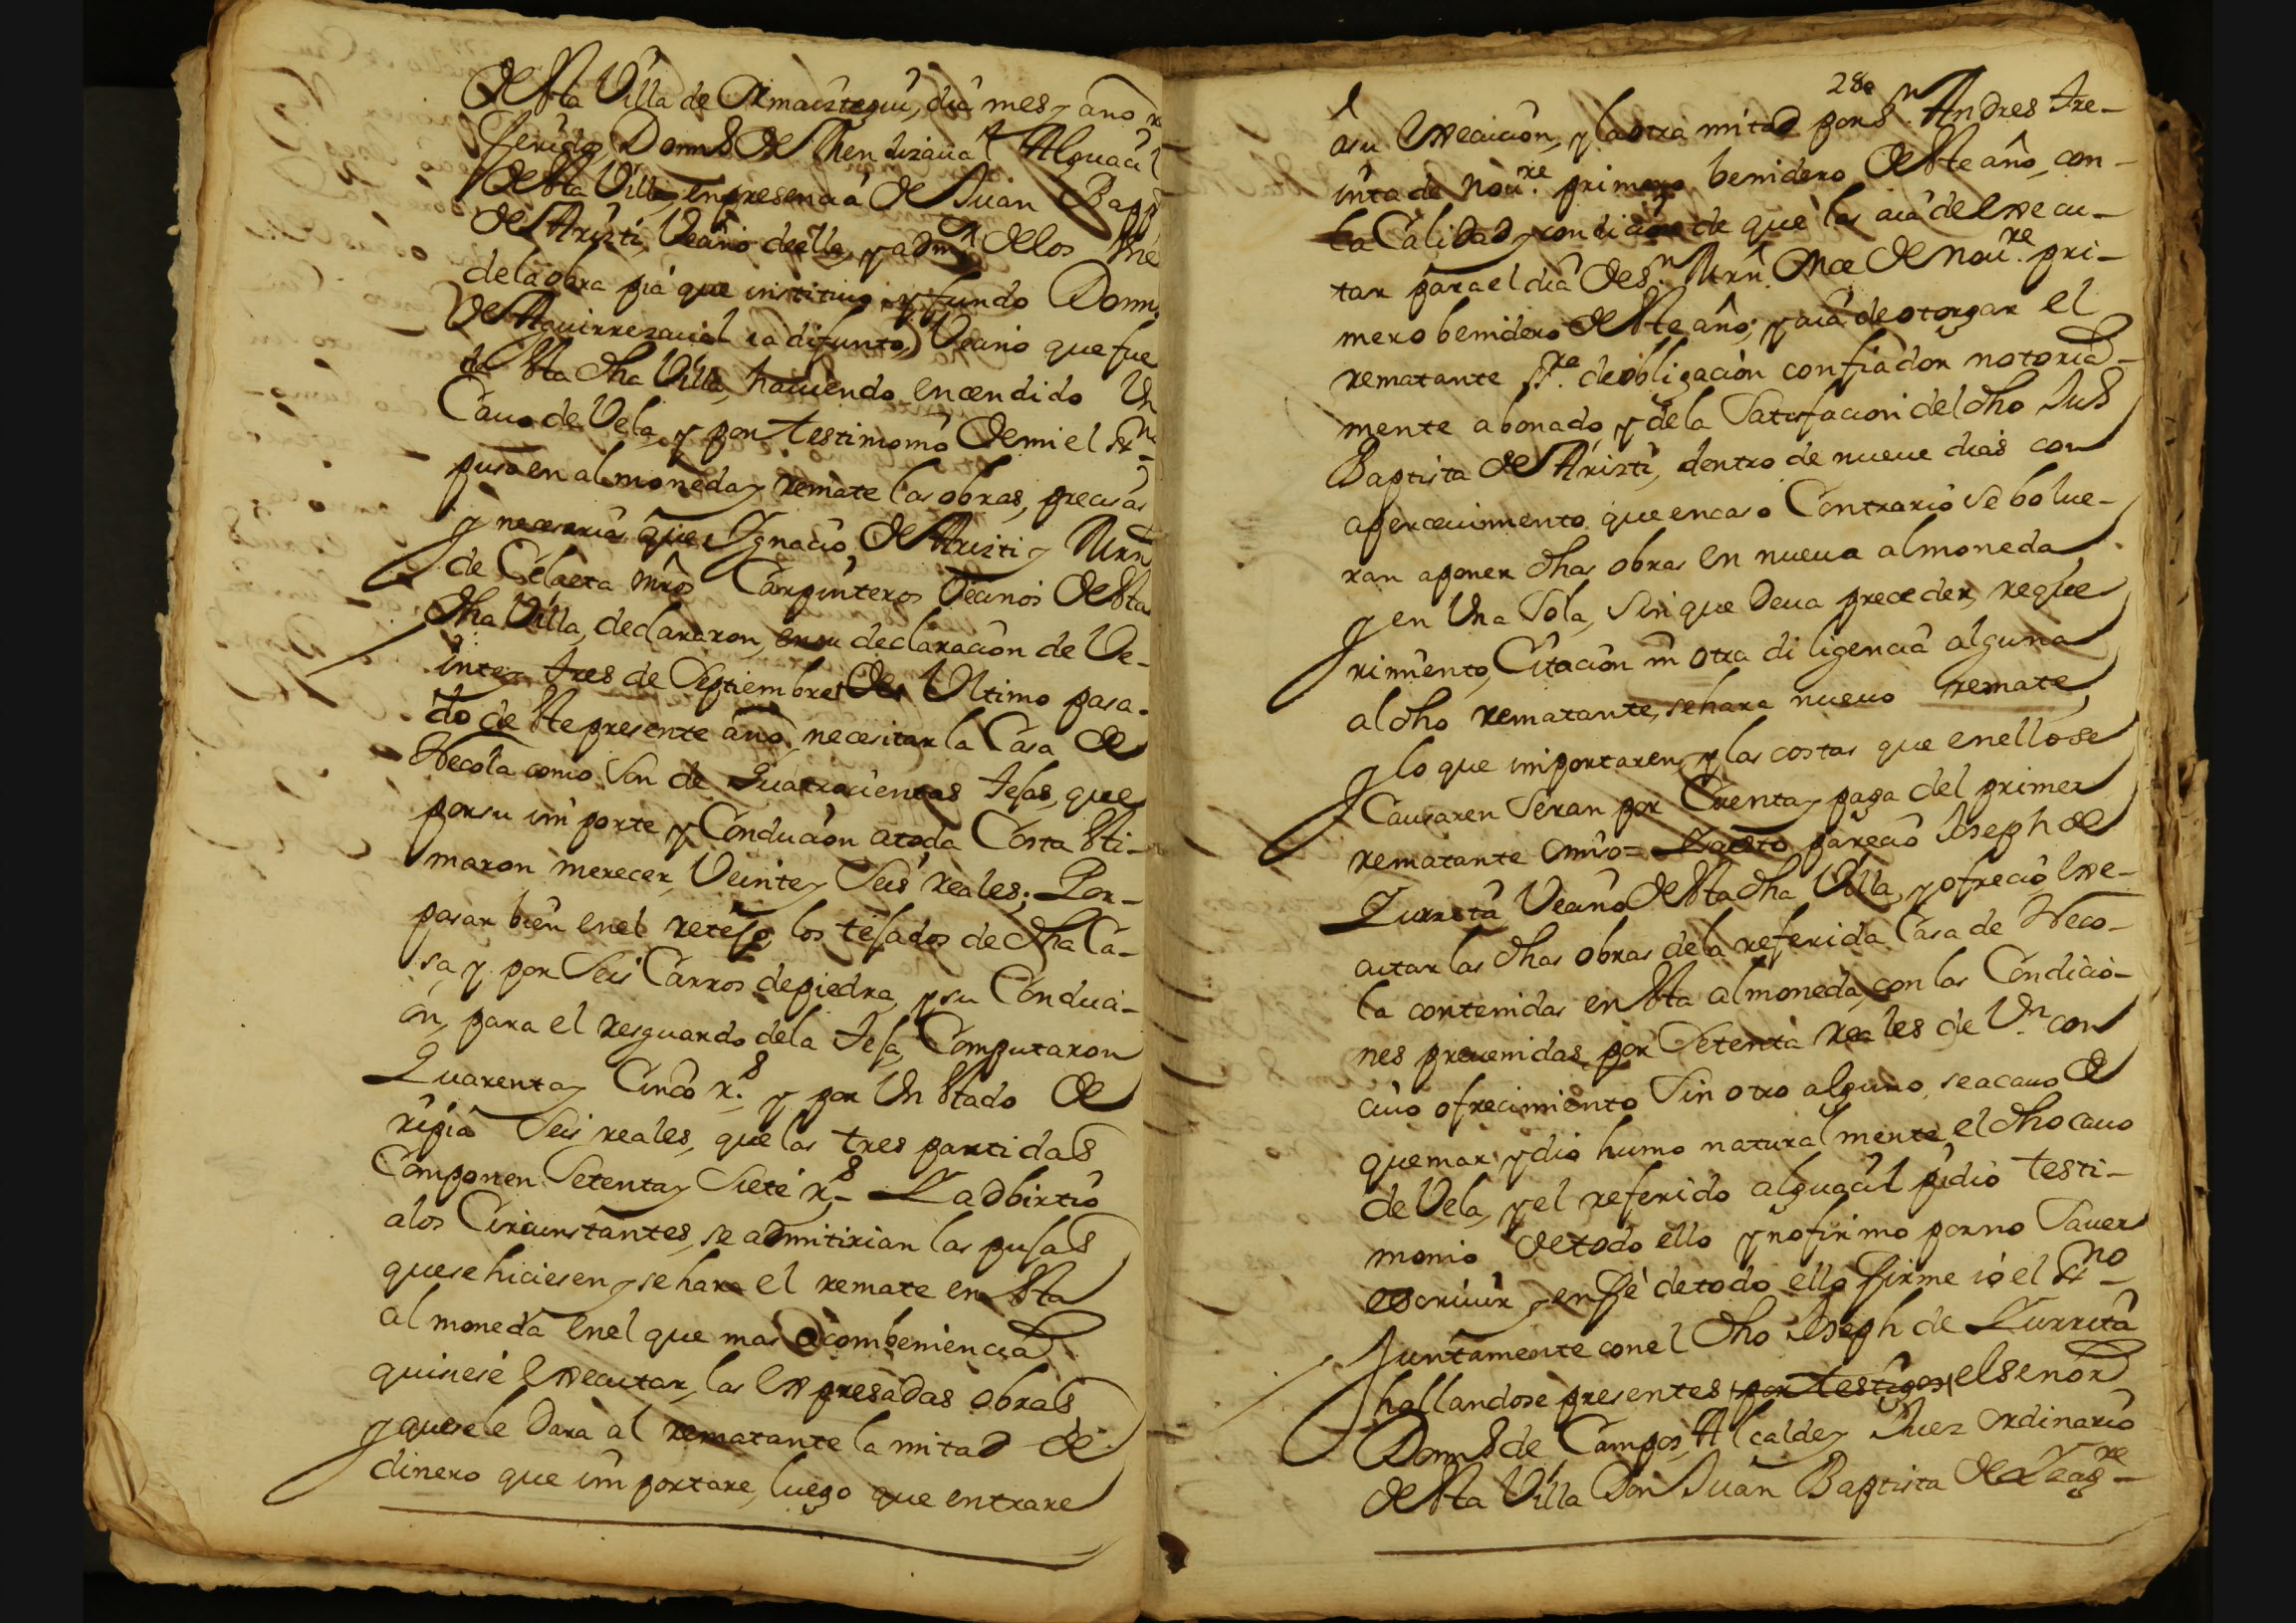 de esta Villa de Ormaiztegui, dia mes y año re
ferido, Dom.s de Mendizaual Alguacil
de esta Villa, en presencia de Juan Bap.
de Aristi, Vecino de ella, y adm.r de los
de la obra pia que instituio, y fundo Dom.s
de Aguirrezaual ia difunto, Vecino que fue
de esta dha Villa, hauiendo encendido Un
Cauo de Vela, y por testimonio de mi el ss.no
puso en almoneda, y remate las obras, precisas
y necesarias que Ignacio de Aristi y Mrn
de Celaeta mros Carpinteros Vecinos de esta
dha Villa, declararon, en su declaracion de Ve-
inte y tres de Septiembre del Ultimo pasa-
do de este presente año, necesitar la Casa de
Hecola como son de quatrocientas tejas, que
por su importe, y Conducion a toda Costa esti-
maron merecer, Veinte y Seis reales; Por-
pasar bien en el retejo los tejados de dha Ca-
sa, y por Seis Carros de piedra, y su Conduci-
on, para el resguardo de la teja, Computaron
Quarenta y Cinco r.s y por Un estado de
ripia Seis reales, que las tres partidas
Componen Setenta y Siete r.s Y adbirtio
a los Circunstantes, se admitirian las pujas
que se hiciesen, y se hara el remate en esta
almoneda en el que mas a combeniencia
quisiese Executar, las Expresadas obras
y que se le Dara al rematante la mitad de
dinero que importare, luego que entrare
280
a su Execucion, y la otra mitad por S.n Andres tre-
inta de Nou.re primero benidero de este año, con-
la Calidad, y condicion de que las aia de Execu-
tar para el dia de S.n Mrn Once de Nou.re pri-
mero benidero de este año; y aia de otorgar el
rematante ss.ra de obligacion con fiador notoria-
mente abonado, y de la Satisfacion del dho Ju.s
Baptista de Aristi, dentro de nueue dias con
apercevimiento que en caso Contrario se bolue-
ran a poner dhas obras en nueua almoneda
y en Una Sola, Sin que Deua preceder, reque
rimiento, Citacion ni otra diligencia alguna
al dho rematante, se hara nueuo remate
y lo que importaren, y las costas que en ello se
Causaren Seran por Cuenta, y paga del primer
rematante omiso = Y a esto parecio Joseph de
Zurruta Vecino de esta dha Villa, y ofrecio Exe-
cutar las dhas obras de la referida Casa de Heco-
la contenidas en esta almoneda, con las Condicio-
nes preuenidas, por Setenta reales de V.n con
cuio ofrecimiento Sin otro alguno, se acauo de
quemar y dio humo naturalmente el dho cauo
de Vela, y el referido alguacil pidio testi-
monio de todo ello y no firmo por no Sauer
escriuir, y en fe de todo ello firme io el ss.no
Juntamente con el dho Joseph de Zurruta
hallandose presentes, por testigos, el senor
Dom.s de Campos, Alcalde y Juez ordinario
de esta Villa Don Juan Baptista de